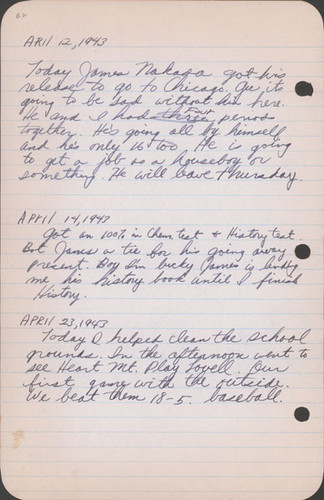 62
APRIL 12, 1943
Today James Nakada got his
release to go to Chicago. Gee it's
going to be sad without him here.
He and I had three Four periods
together. He's going all by himself
and he's only 16 too. He is going
to get a job as a houseboy or
something. He will leave Thursday.
APRIL 14, 1943
Got an 100% in Chem. test & History test.
Bot James a tie for his going away
present. Boy I'm lucky James is lending
me his history book until I finish
History.
APRIL 23, 1943
Today I helped clean the school
grounds. In the afternoon went to
see Heart Mt. Play Lovell. Our
first game with the outside.
We beat them 18-5. baseball.